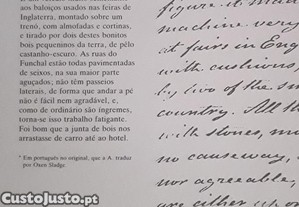 aos baloços usados nas feiras de
Inglaterra, montado sobre um
trenó, com almofadas e cortinas,
e tirado por dois destes bonitos
bois pequeninos da terra, de pêlo
castanho-escuro. As ruas do
Funchal estão todas pavimentadas
de seixos, na sua maior parte
aguçados; não têm passeios
laterais, de forma que andar a pé
não é fácil nem agradável, e,
como de ordinário são íngremes,
torna-se isso trabalho fatigante.
Foi bom que a junta de bois nos
arrastasse de carro até ao hotel.
* Em português no original, que a A. traduz
por Oxen Sledge.
figure it made
machine very
at fairs in Eng
with cushions,
by two of the sm
country. All th
with stones, mo
no causeway,
nor agreeable,
are either up or
CustoJusto.pt